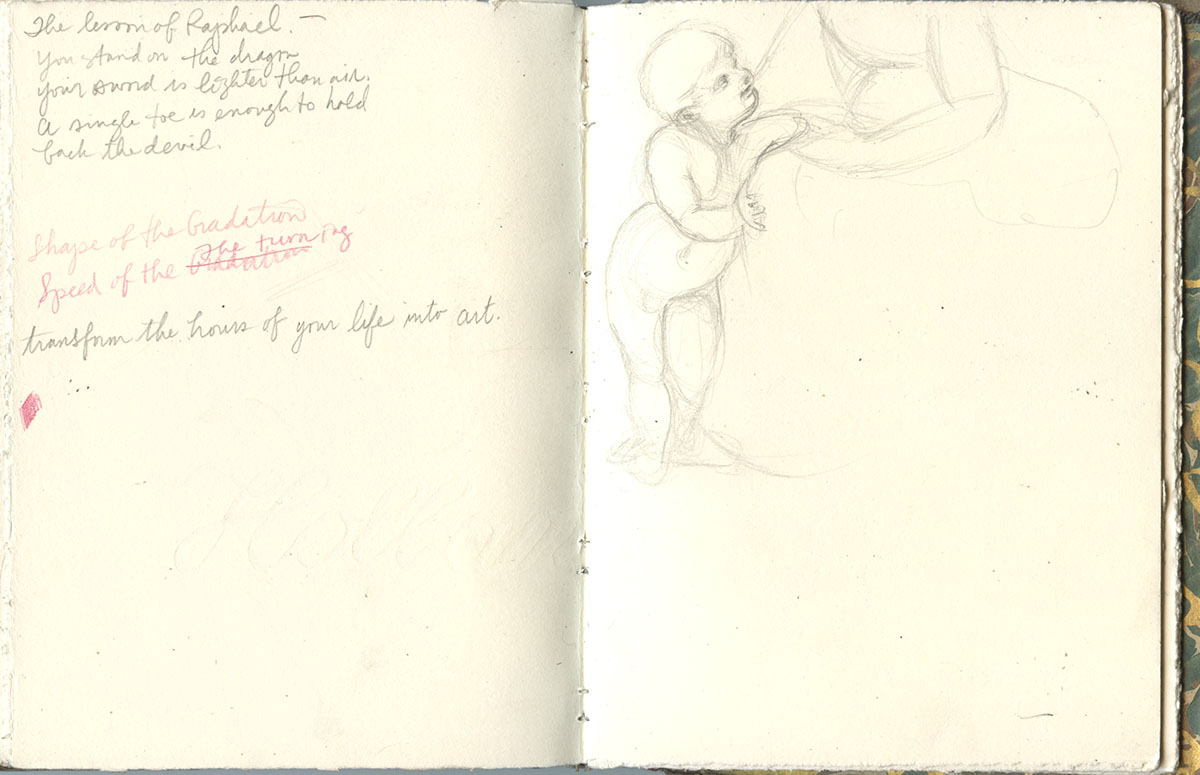 The lesson of Raphael. —
You stand on the dragon
your sword is lighter than air.
A single toe is enough to hold
back the devil.
Shape of the Gradation
The turning
Speed of the Gradation
transform the hours of your life into art.